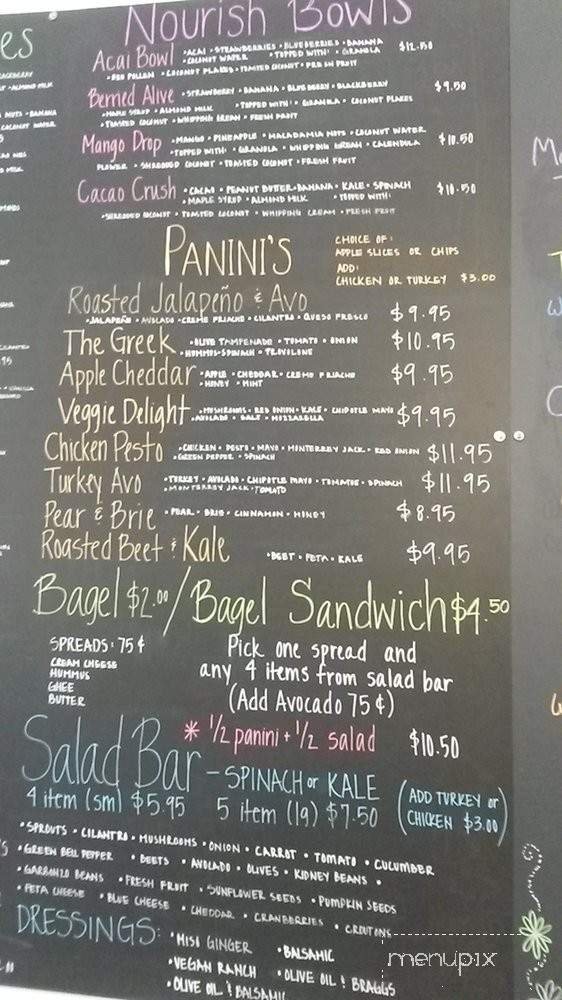 es
Nourish Bowls
Acai Bowl • ACAI • STRAWBERRIES • BLUEBERRIES • BANANA $12.50
• COCONUT WATER • TOPPED WITH: • GRANOLA
• BEE POLLEN • COCONUT FLAKES • TOASTED COCONUT • FRESH FRUIT
Berried Alive • STRAWBERRY • BANANA • BLUEBERRY • BLACKBERRY $9.50
• MAPLE SYRUP • ALMOND MILK • TOPPED WITH: • GRANOLA • COCONUT FLAKES
• TOASTED COCONUT • WHIPPING CREAM • FRESH FRUIT
Mango Drop • MANGO • PINEAPPLE • MACADAMIA NUTS • COCONUT WATER $10.50
• TOPPED WITH: • GRANOLA • WHIPPING CREAM • CALENDULA
FLOWER • SHREDDED COCONUT • TOASTED COCONUT • FRESH FRUIT
Cacao Crush • CACAO • PEANUT BUTTER • BANANA • KALE • SPINACH $10.50
• MAPLE SYRUP • ALMOND MILK • TOPPED WITH:
• SHREDDED COCONUT • TOASTED COCONUT • WHIPPING CREAM • FRESH FRUIT
PANINI'S
CHOICE OF:
APPLE SLICES OR CHIPS
ADD:
CHICKEN OR TURKEY $3.00
Roasted Jalapeño & Avo $9.95
• JALAPEÑO • AVOCADO • CREME FRIACHE • CILANTRO • QUESO FRESCO
The Greek • OLIVE TAMPENADE • TOMATO • ONION $10.95
• HUMMUS • SPINACH • PROVOLONE
Apple Cheddar • APPLE • CHEDDAR • CREME FRIACHE $9.95
• HONEY • MINT
Veggie Delight • MUSHROOMS • RED ONION • KALE • CHIPOTLE MAYO $9.95
• AVOCADO • SALT • MOZZARELLA
Chicken Pesto • CHICKEN • PESTO • MAYO • MONTERREY JACK • RED ONION $11.95
• GREEN PEPPER • SPINACH
Turkey Avo • TURKEY • AVOCADO • CHIPOTLE MAYO • TOMATOE • SPINACH $11.95
• MONTERREY JACK • TOMATO
Pear & Brie • PEAR • BRIE • CINNAMON • HONEY $8.95
Roasted Beet & Kale • BEET • FETA • KALE $9.95
Bagel $2.00 / Bagel Sandwich $4.50
SPREADS: 75¢
CREAM CHEESE
HUMMUS
GHEE
BUTTER
Pick one spread and
any 4 items from salad bar
(Add Avocado 75¢)
* 1/2 panini + 1/2 salad $10.50
Salad Bar - SPINACH or KALE
4 item (sm) $5.95 5 item (lg) $7.50
(ADD TURKEY or
CHICKEN $3.00)
• SPROUTS • CILANTRO • MUSHROOMS • ONION • CARROT • TOMATO • CUCUMBER
• GREEN BELL PEPPER • BEETS • AVOLADO • OLIVES • KIDNEY BEANS •
GARBONZO BEANS • FRESH FRUIT • SUNFLOWER SEEDS • PUMPKIN SEEDS
• FETA CHEESE • BLUE CHEESE • CHEDDAR • CRANBERRIES • CROUTONS
DRESSINGS:
• MISI GINGER • BALSAMIC
• VEGAN RANCH • OLIVE OIL & BRAGGS
• OLIVE OIL & BALSAMIC
menupix